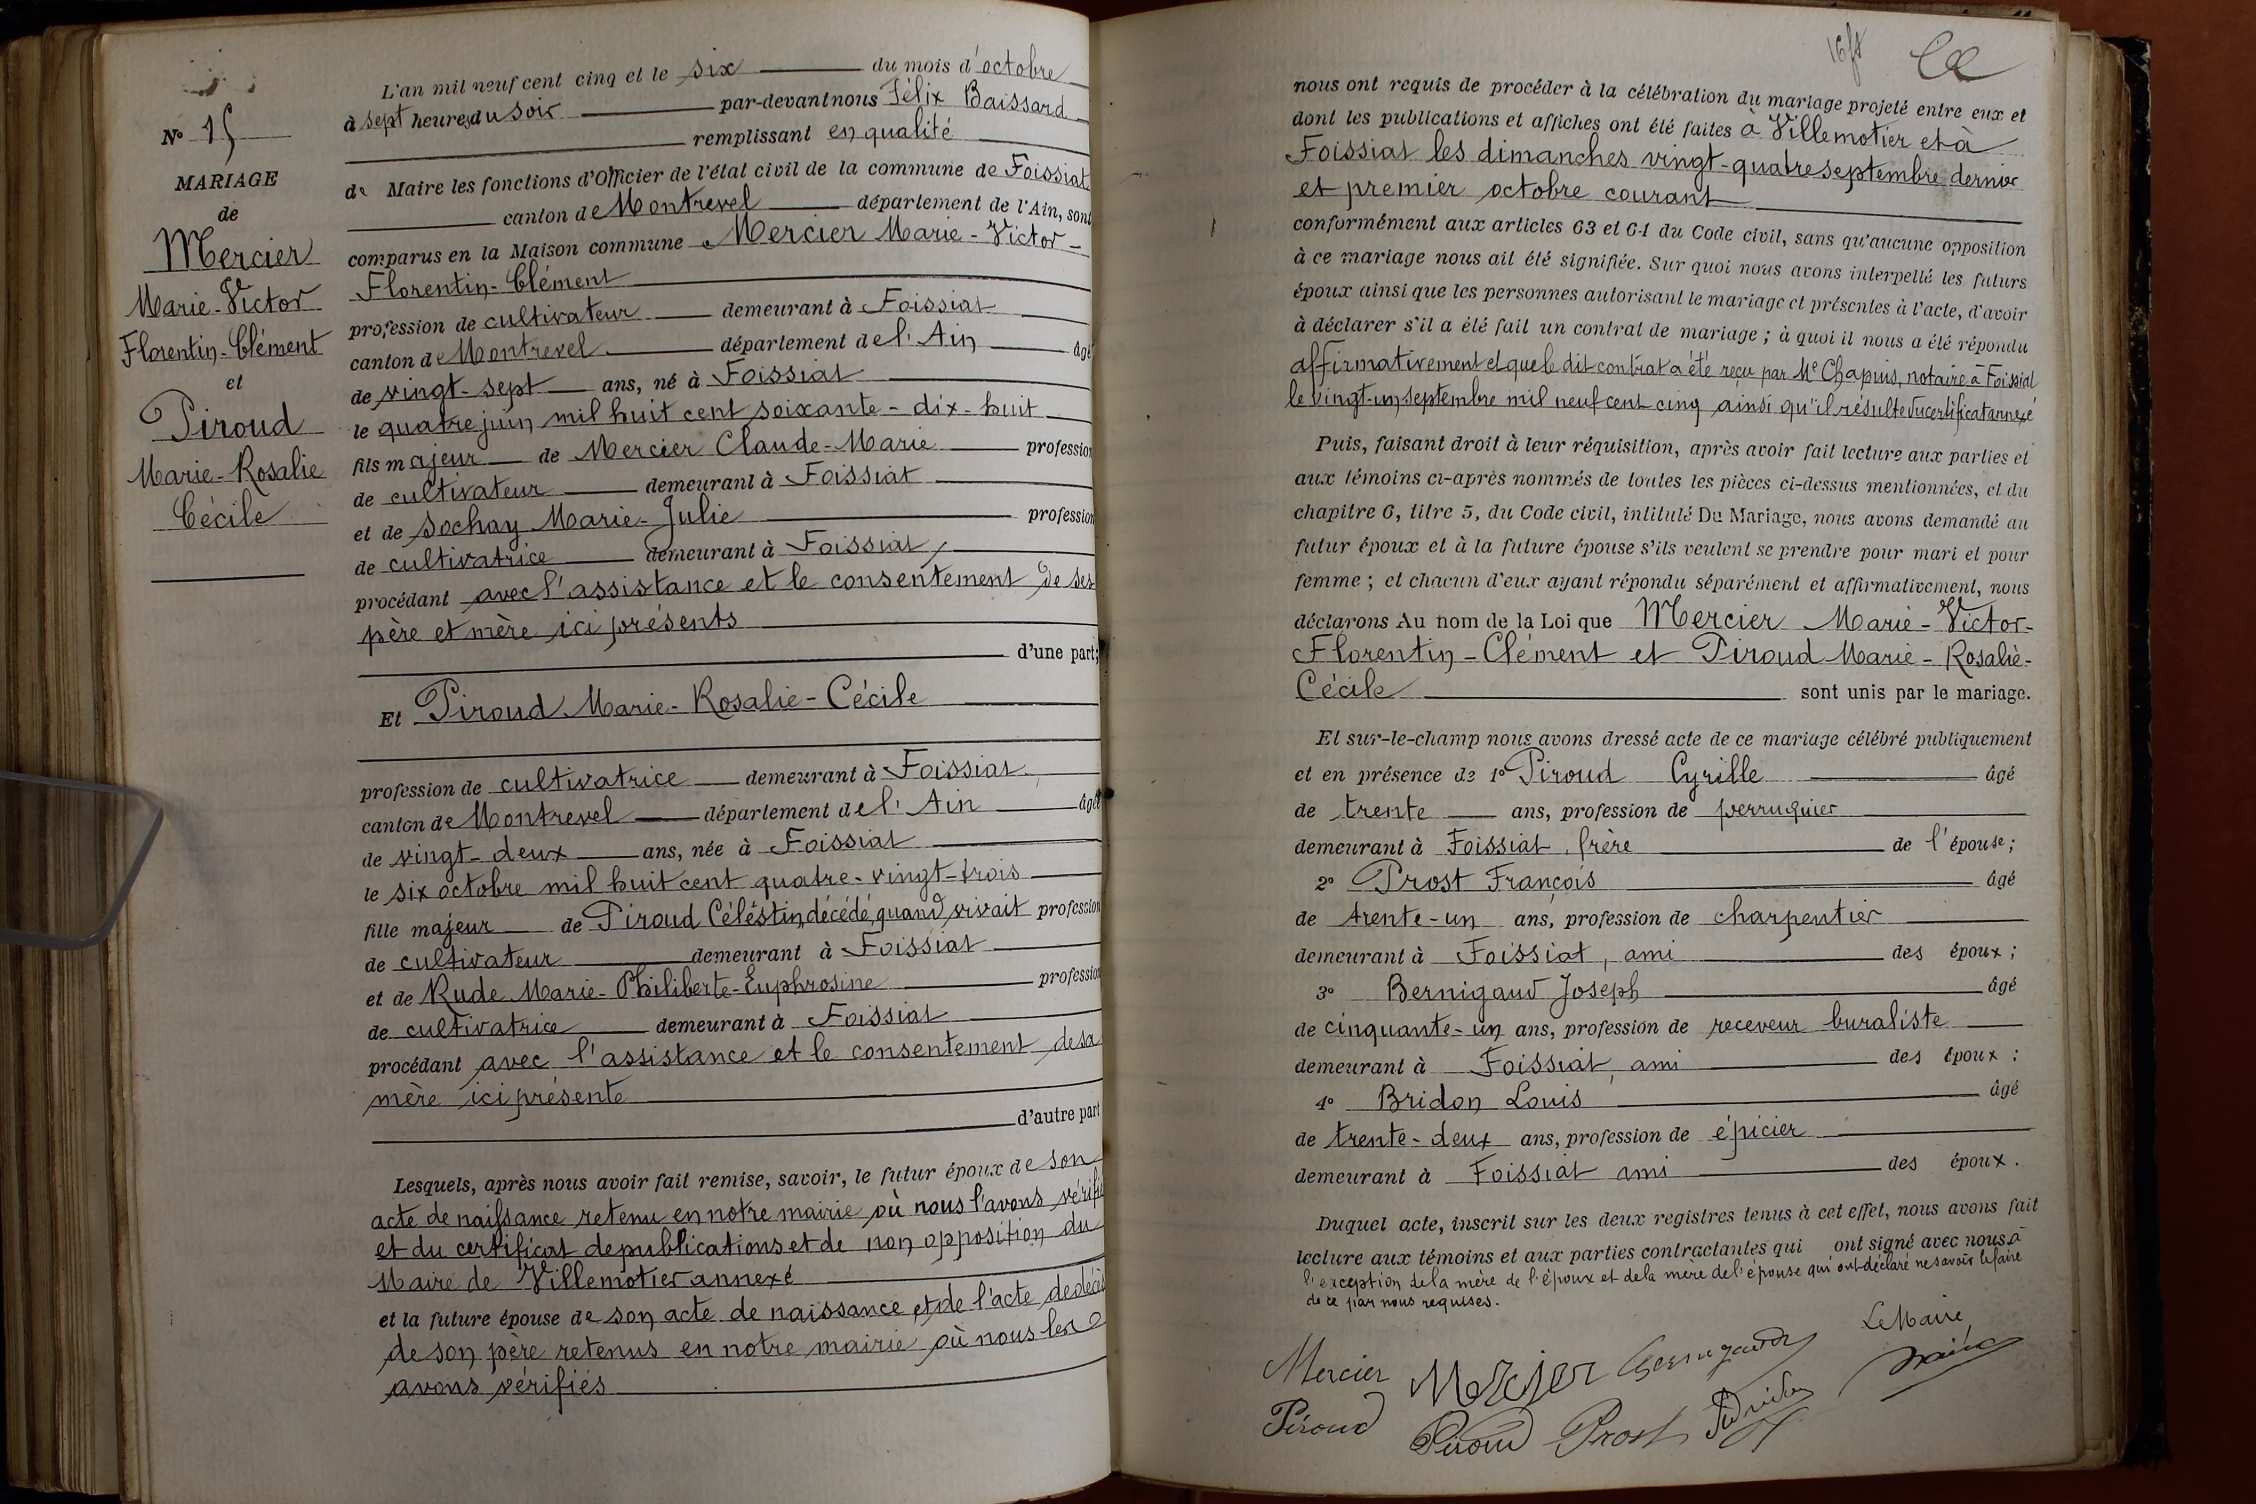 N° 15
MARIAGE
de
Mercier
Marie-Victor
Florentin-Clément
et
Piroud
Marie-Rosalie
Cécile
L'an mil neuf cent cinq et le six du mois d'octobre
à sept heures du soir par-devant nous Félix Baissard
remplissant en qualité
de Maire les fonctions d'Officier de l'état civil de la commune de Foissiat
canton de Montrevel département de l'Ain, sont
comparus en la Maison commune Mercier Marie-Victor-
Florentin-Clément
profession de cultivateur demeurant à Foissiat
canton de Montrevel département de l'Ain âgé
de vingt-sept ans, né à Foissiat
le quatre juin mil huit cent soixante-dix-huit
fils majeur de Mercier Claude-Marie profession
de cultivateur demeurant à Foissiat
et de Sochay Marie-Julie profession
de cultivatrice demeurant à Foissiat,
procédant avec l'assistance et le consentement de ses
père et mère ici présents
d'une part;
Et Piroud Marie-Rosalie-Cécile
profession de cultivatrice demeurant à Foissiat
canton de Montrevel département de l'Ain âgée
de vingt-deux ans, née à Foissiat
le six octobre mil huit cent quatre-vingt-trois
fille majeur de Piroud Céléstin, décédé, quand vivait profession
de cultivateur demeurant à Foissiat
et de Rude Marie-Philiberte-Euphrosine profession
de cultivatrice demeurant à Foissiat
procédant avec l'assistance et le consentement de sa
mère ici présente
d'autre part
Lesquels, après nous avoir fait remise, savoir, le futur époux de son
acte de naissance retenu en notre mairie où nous l'avons vérifié
et du certificat de publications et de non opposition du
Maire de Villemotier annexé
et la future épouse de son acte de naissance et de l'acte de décès
de son père retenus en notre mairie où nous les
avons vérifiés
nous ont requis de procéder à la célébration du mariage projeté entre eux et
dont les publications et affiches ont été faites à Villemotier et à
Foissiat les dimanches vingt-quatre septembre dernier
et premier octobre courant
conformément aux articles 63 et 64 du Code civil, sans qu'aucune opposition
à ce mariage nous ait été signifiée. Sur quoi nous avons interpellé les futurs
époux ainsi que les personnes autorisant le mariage et présentes à l'acte, d'avoir
à déclarer s'il a été fait un contrat de mariage ; à quoi il nous a été répondu
affirmativement et que le dit contrat a été reçu par Me Chapuis, notaire à Foissiat
le vingt-un septembre mil neuf cent cinq ainsi qu'il résulte du certificat annexé
Puis, faisant droit à leur réquisition, après avoir fait lecture aux parties et
aux témoins ci-après nommés de toutes les pièces ci-dessus mentionnées, et du
chapitre 6, titre 5, du Code civil, intitulé Du Mariage, nous avons demandé au
futur époux et à la future épouse s'ils veulent se prendre pour mari et pour
femme ; et chacun d'eux ayant répondu séparément et affirmativement, nous
déclarons Au nom de la Loi que Mercier Marie-Victor-
Florentin-Clément et Piroud Marie-Rosalie-
Cécile sont unis par le mariage.
Et sur-le-champ nous avons dressé acte de ce mariage célébré publiquement
et en présence de 1° Piroud Cyrille âgé
de trente ans, profession de perruquier
demeurant à Foissiat, frère de l'épouse;
2° Prost François âgé
de trente-un ans, profession de charpentier
demeurant à Foissiat, ami des époux;
3° Bernigaud Joseph âgé
de cinquante-un ans, profession de receveur buraliste
demeurant à Foissiat, ami des époux;
4° Bridon Louis âgé
de trente-deux ans, profession de épicier
demeurant à Foissiat ami des époux.
Duquel acte, inscrit sur les deux registres tenus à cet effet, nous avons fait
lecture aux témoins et aux parties contractantes qui ont signé avec nous à
l'exception de la mère de l'époux et de la mère de l'épouse qui ont déclaré ne savoir le faire
de ce par nous requises.
Le Maire
Mercier Mercier Bernigaud
Piroud Piroud Prost Bridon